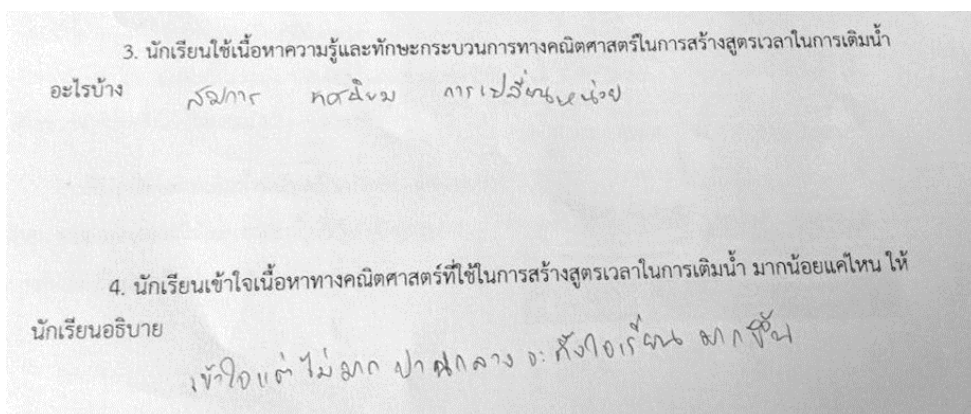 3. นักเรียนใช้เนื้อหาความรู้และทักษะกระบวนการทางคณิตศาสตร์ในการสร้างสูตรเวลาในการเติมน้ำ
อะไรบ้าง สมการ ทศนิยม การเปลี่ยนหน่วย
4. นักเรียนเข้าใจเนื้อหาทางคณิตศาสตร์ที่ใช้ในการสร้างสูตรเวลาในการเติมน้ำ มากน้อยแค่ไหน ให้
นักเรียนอธิบาย
เข้าใจแต่ ไม่มาก ปานกลาง จะตั้งใจเรียน มากขึ้น